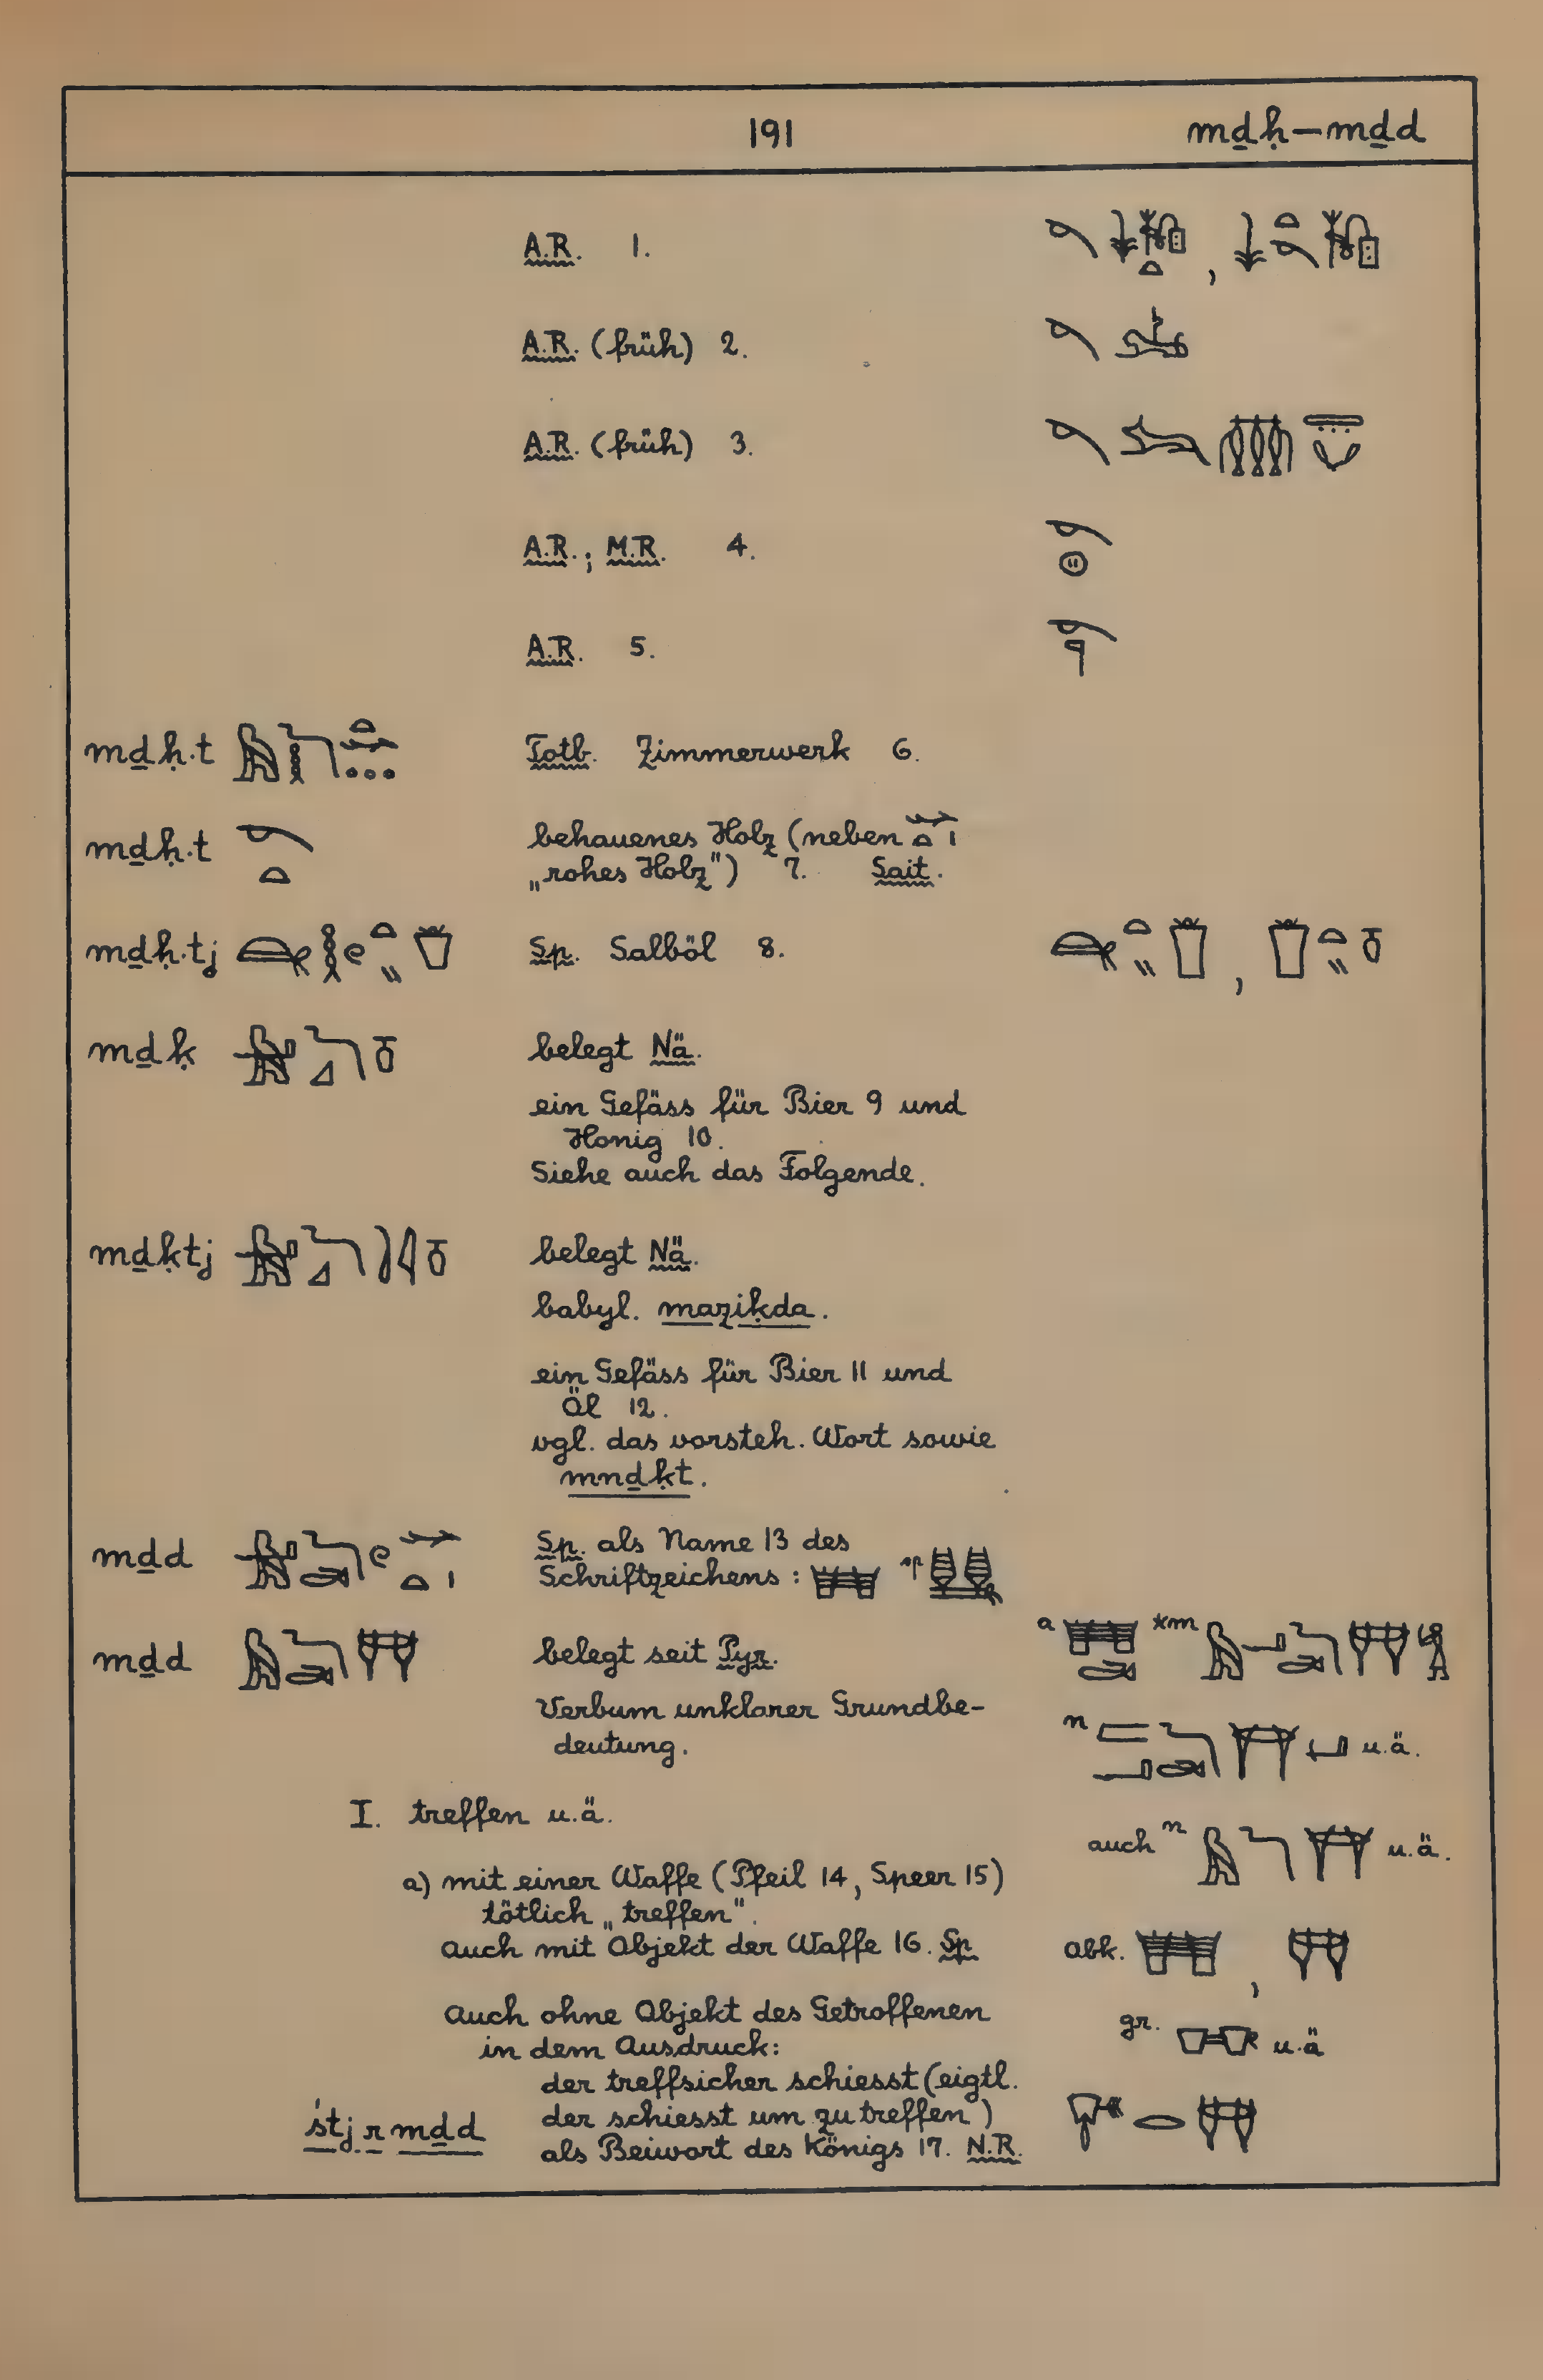 191 mḏḥ—mḏd
A.R. 1.
A.R. (früh) 2.
A.R. (früh) 3.
A.R.; M.R. 4.
A.R. 5.
mḏḥ.t Totb. Zimmerwerk 6.
mḏḥ.t behauenes Holz (neben
„rohes Holz") 7. Sait.
mḏḥ.tj Sp. Salböl 8.
mḏḳ belegt Nä.
ein Gefäss für Bier 9 und
Honig 10.
Siehe auch das Folgende.
mḏḳtj belegt Nä.
babyl. maziḳda.
ein Gefäss für Bier 11 und
Öl 12.
vgl. das vorsteh. Wort sowie
mnḏḳt.
mḏd Sp. als Name 13 des
Schriftzeichens: sp
mḏd belegt seit Pyr. a *m
Verbum unklarer Grundbe-
deutung. n u.ä.
I. treffen u.ä.
auch n u.ä.
a) mit einer Waffe (Pfeil 14, Speer 15)
tötlich „treffen".
auch mit Objekt der Waffe 16. Sp. abk. ,
auch ohne Objekt des Getroffenen
in dem Ausdruck: gr. u.ä
der treffsicher schiesst (eigtl.
śtj r mḏd der schiesst um zu treffen)
als Beiwort des Königs 17. N.R.